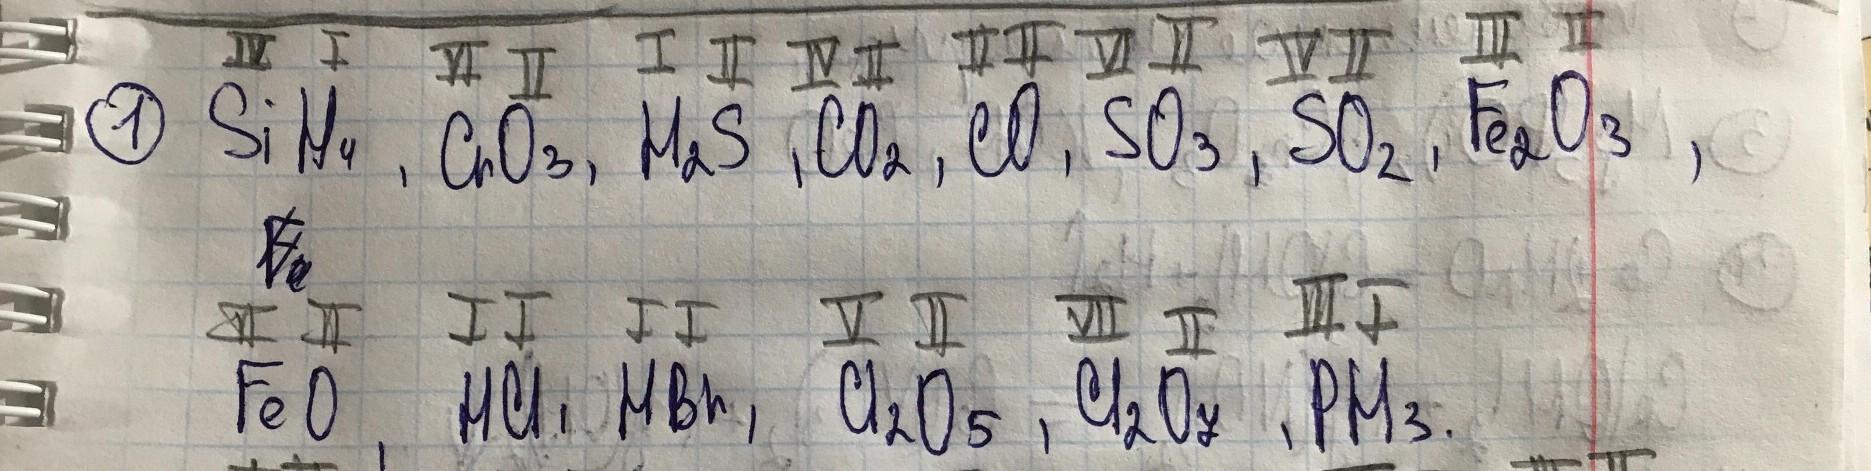 IV I VI II I II IV II II II VI II IV II III II
① SiH₄, CrO₃, H₂S, CO₂, CO, SO₃, SO₂, Fe₂O₃,
II II I I I I V II VII II III I
FeO, HCl, HBr, Cl₂O₅, Cl₂O₇, PH₃.